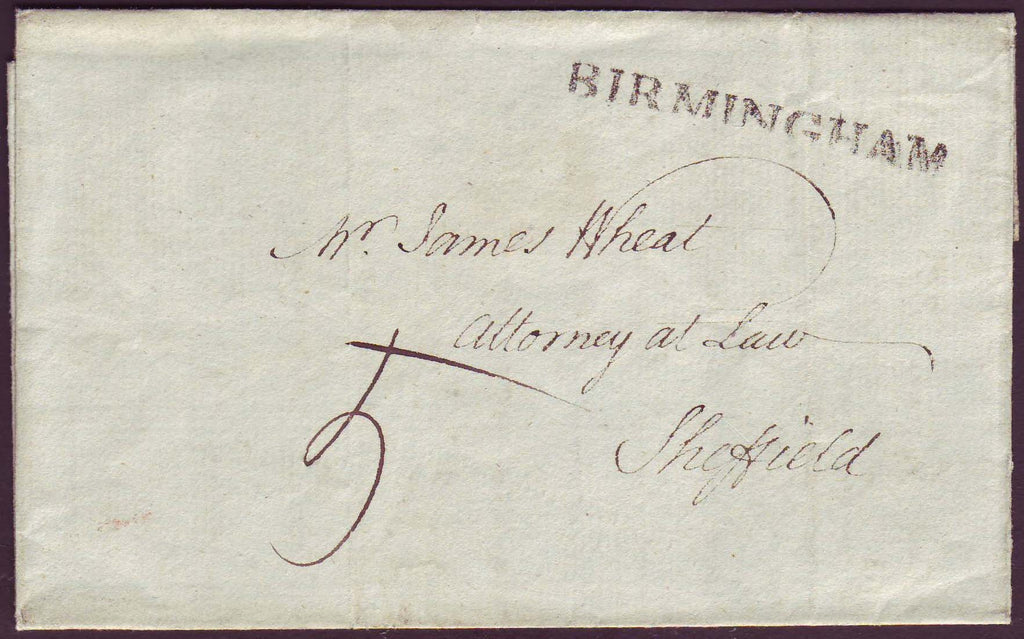 BIRMINGHAM
Mr. James Wheat
Attorney at Law
5
Sheffield